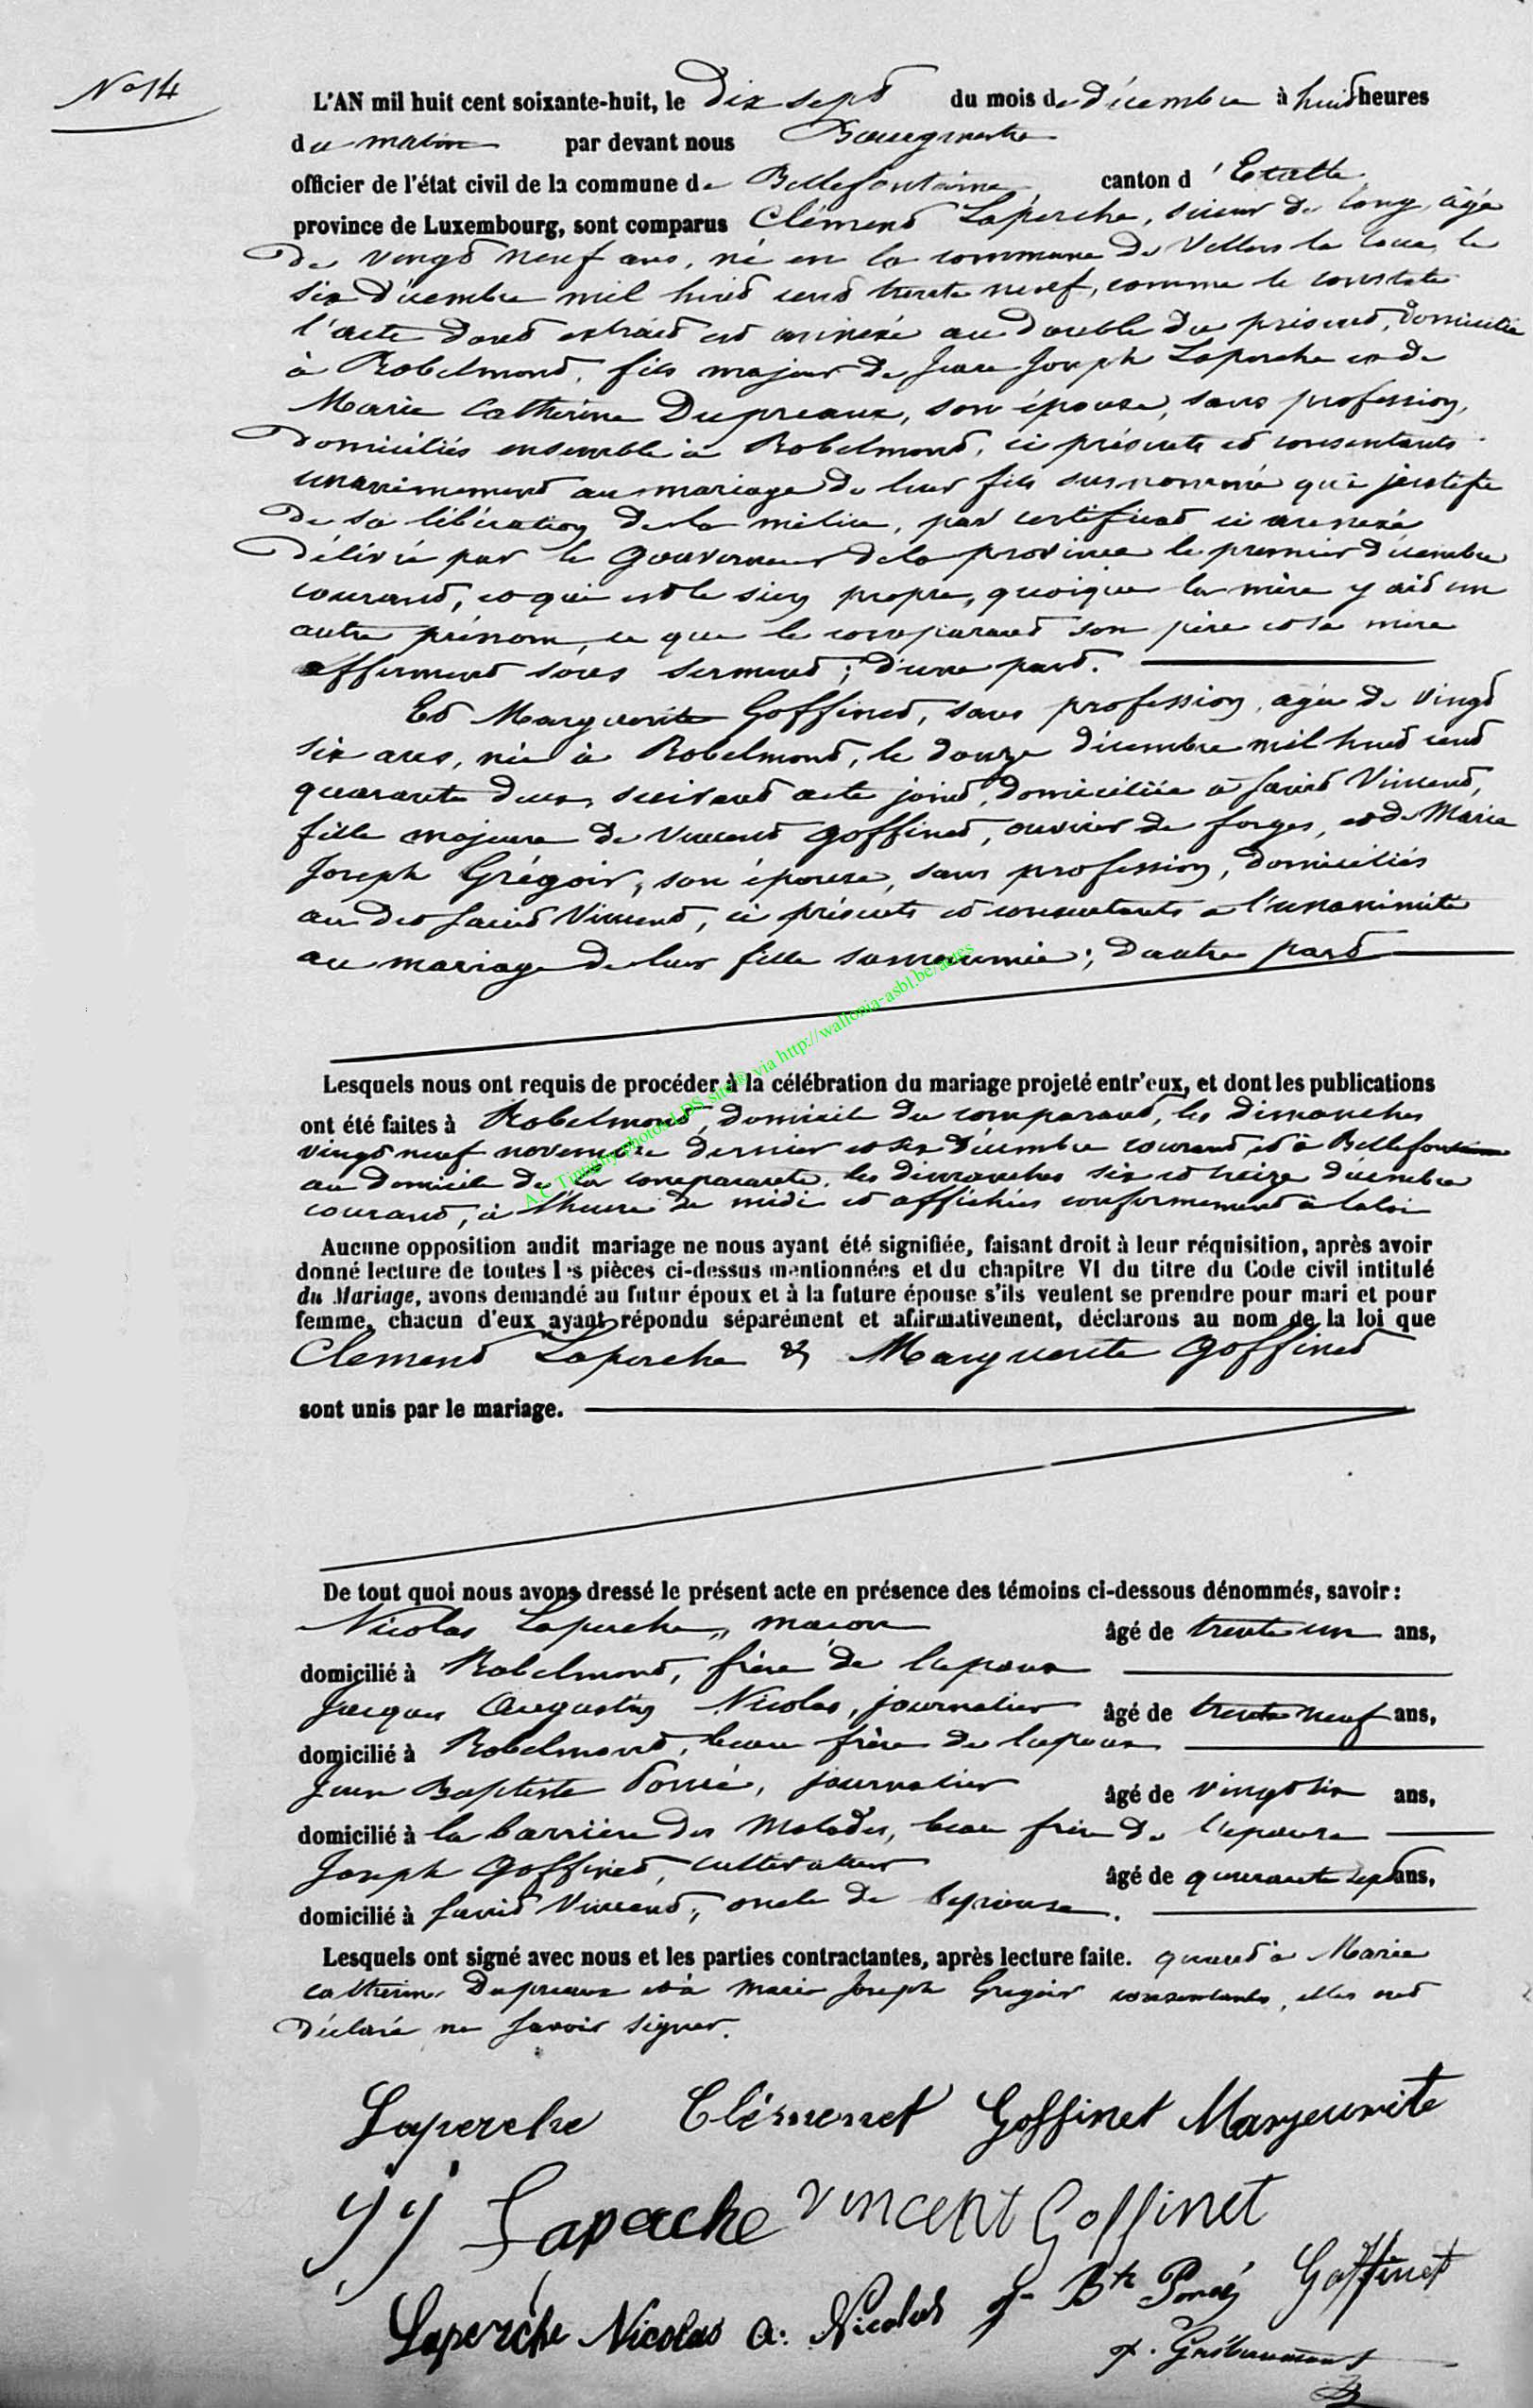 N° 14
L'AN mil huit cent soixante-huit, le Dix sept du mois de décembre à huit heures
du matin par devant nous Bourgmestre
officier de l'état civil de la commune de Bellefontaine, canton d'Etalle,
province de Luxembourg, sont comparus Clément Laperche, scieur de long, âgé
De vingt neuf ans, né en la commune de Villers la loue, le
six Décembre mil huit cent trente neuf, comme le constate
l'acte dont extrait est annexé au double du présent, domicilié
à Robelmont, fils majeur de Jean Joseph Laperche et de
Marie Catherine Dupreaux, son épouse, sans profession,
Domiciliés ensemble à Robelmont, ci présents et consentants
unanimement au mariage de leur fils susnommé qui justifie
De sa libération de la milice, par certificat ci annexé
Délivré par le Gouverneur de la province le premier Décembre
courant, et qui est le sien propre, quoique la mère y ait un
autre prénom, ce que le comparant son père et sa mère
afferment sous serment; d'une part.
Et Marguerite Goffinet, sans profession, agée de vingt
six ans, née à Robelmont, le douze décembre mil huit cent
quarante deux, suivant acte joint, domiciliée à Saint Vincent,
fille majeure de Vincent Goffinet, ouvrier de forges, et de Marie
Joseph Grégoir, son épouse, sans profession, domiciliés
au dit Saint Vincent, ci présents et consentants à l'unanimité
au mariage de leur fille susnommée; d'autre part
Lesquels nous ont requis de procéder à la célébration du mariage projeté entr'eux, et dont les publications
ont été faites à Robelmont, domicile du comparant, les dimanches
vingt neuf novembre dernier et six Décembre courant, et à Bellefontaine
au domicile de la comparante, les dimanches six et treize décembre
courant, à l'heure de midi et affichées conformément à la loi
Aucune opposition audit mariage ne nous ayant été signifiée, faisant droit à leur réquisition, après avoir
donné lecture de toutes les pièces ci-dessus mentionnées et du chapitre VI du titre du Code civil intitulé
du Mariage, avons demandé au futur époux et à la future épouse s'ils veulent se prendre pour mari et pour
femme, chacun d'eux ayant répondu séparément et affirmativement, déclarons au nom de la loi que
Clement Laperche & Marguerite Goffinet
sont unis par le mariage.
De tout quoi nous avons dressé le présent acte en présence des témoins ci-dessous dénommés, savoir:
Nicolas Laperche, maçon âgé de trente un ans,
domicilié à Robelmont, frère de l'epoux
Jacques Augustin Nicolas, journalier âgé de trente neuf ans,
domicilié à Robelmont, beau frère de l'epoux
Jean Baptiste Poncé, journalier âgé de vingt six ans,
domicilié à la barrière des Malades, beau frère de l'epouse
Joseph Goffinet, cultivateur âgé de quarante sept ans,
domicilié à Saint Vincent, oncle de l'epouse.
Lesquels ont signé avec nous et les parties contractantes, après lecture faite. quant à Marie
Catherine Dupreaux et à Marie Joseph Gregoir consentantes, elles ont
Déclaré ne savoir signer.
Laperche Clément Goffinet Margeurite
JJ Laperche Vincent Goffinet
Laperche Nicolas a. Nicolas J- Bte Poncé Goffinet
A.C Tintigny photos LDS site © via http://wallonia-asbl.be/actes